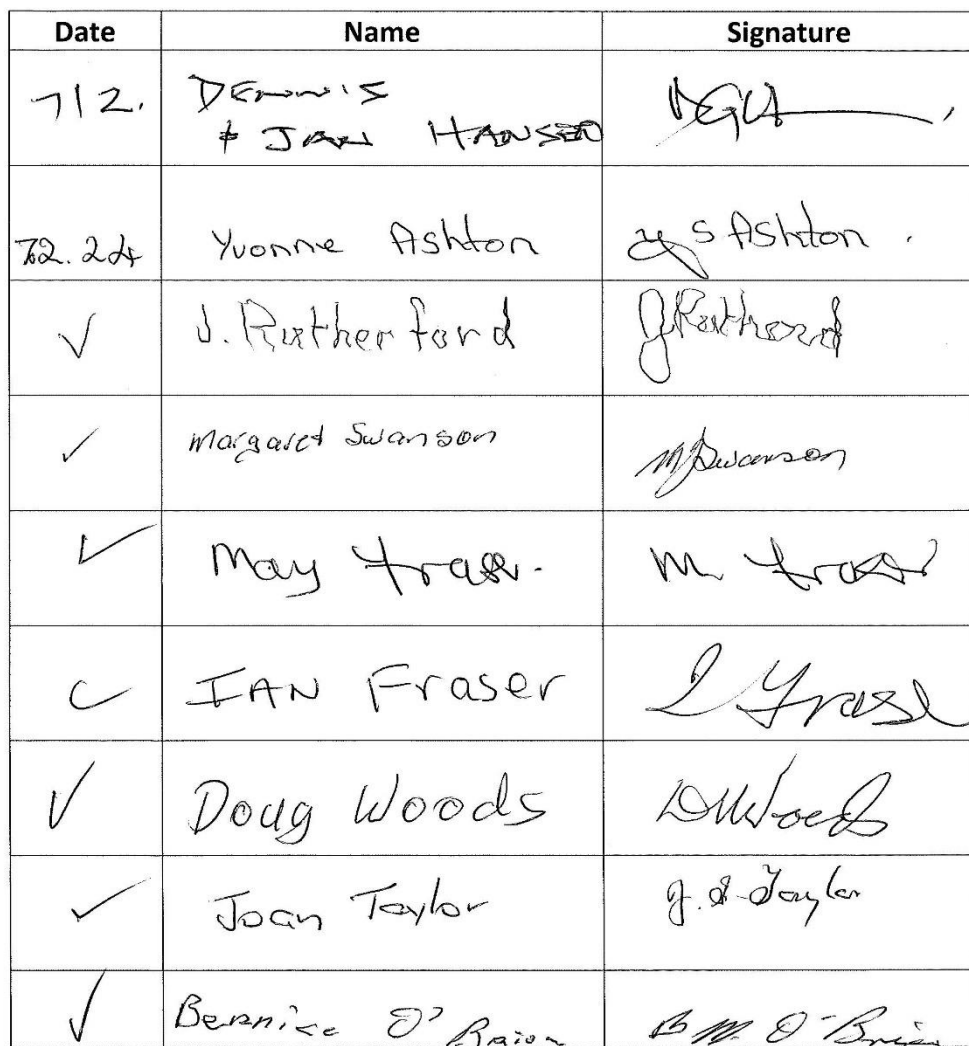 Date Name Signature
7/2. DENNIS
& JAN HANSEN
7.2.24 Yvonne Ashton Y S Ashton.
✓ J. Rutherford J Rutherford
✓ Margaret Swanson M J Swanson
✓ May Fraser. M. Fraser
✓ IAN Fraser I Fraser
✓ Doug Woods D W Woods
✓ Joan Taylor J. S. Taylor
✓ Bernice O'Brien B M. O'Brien